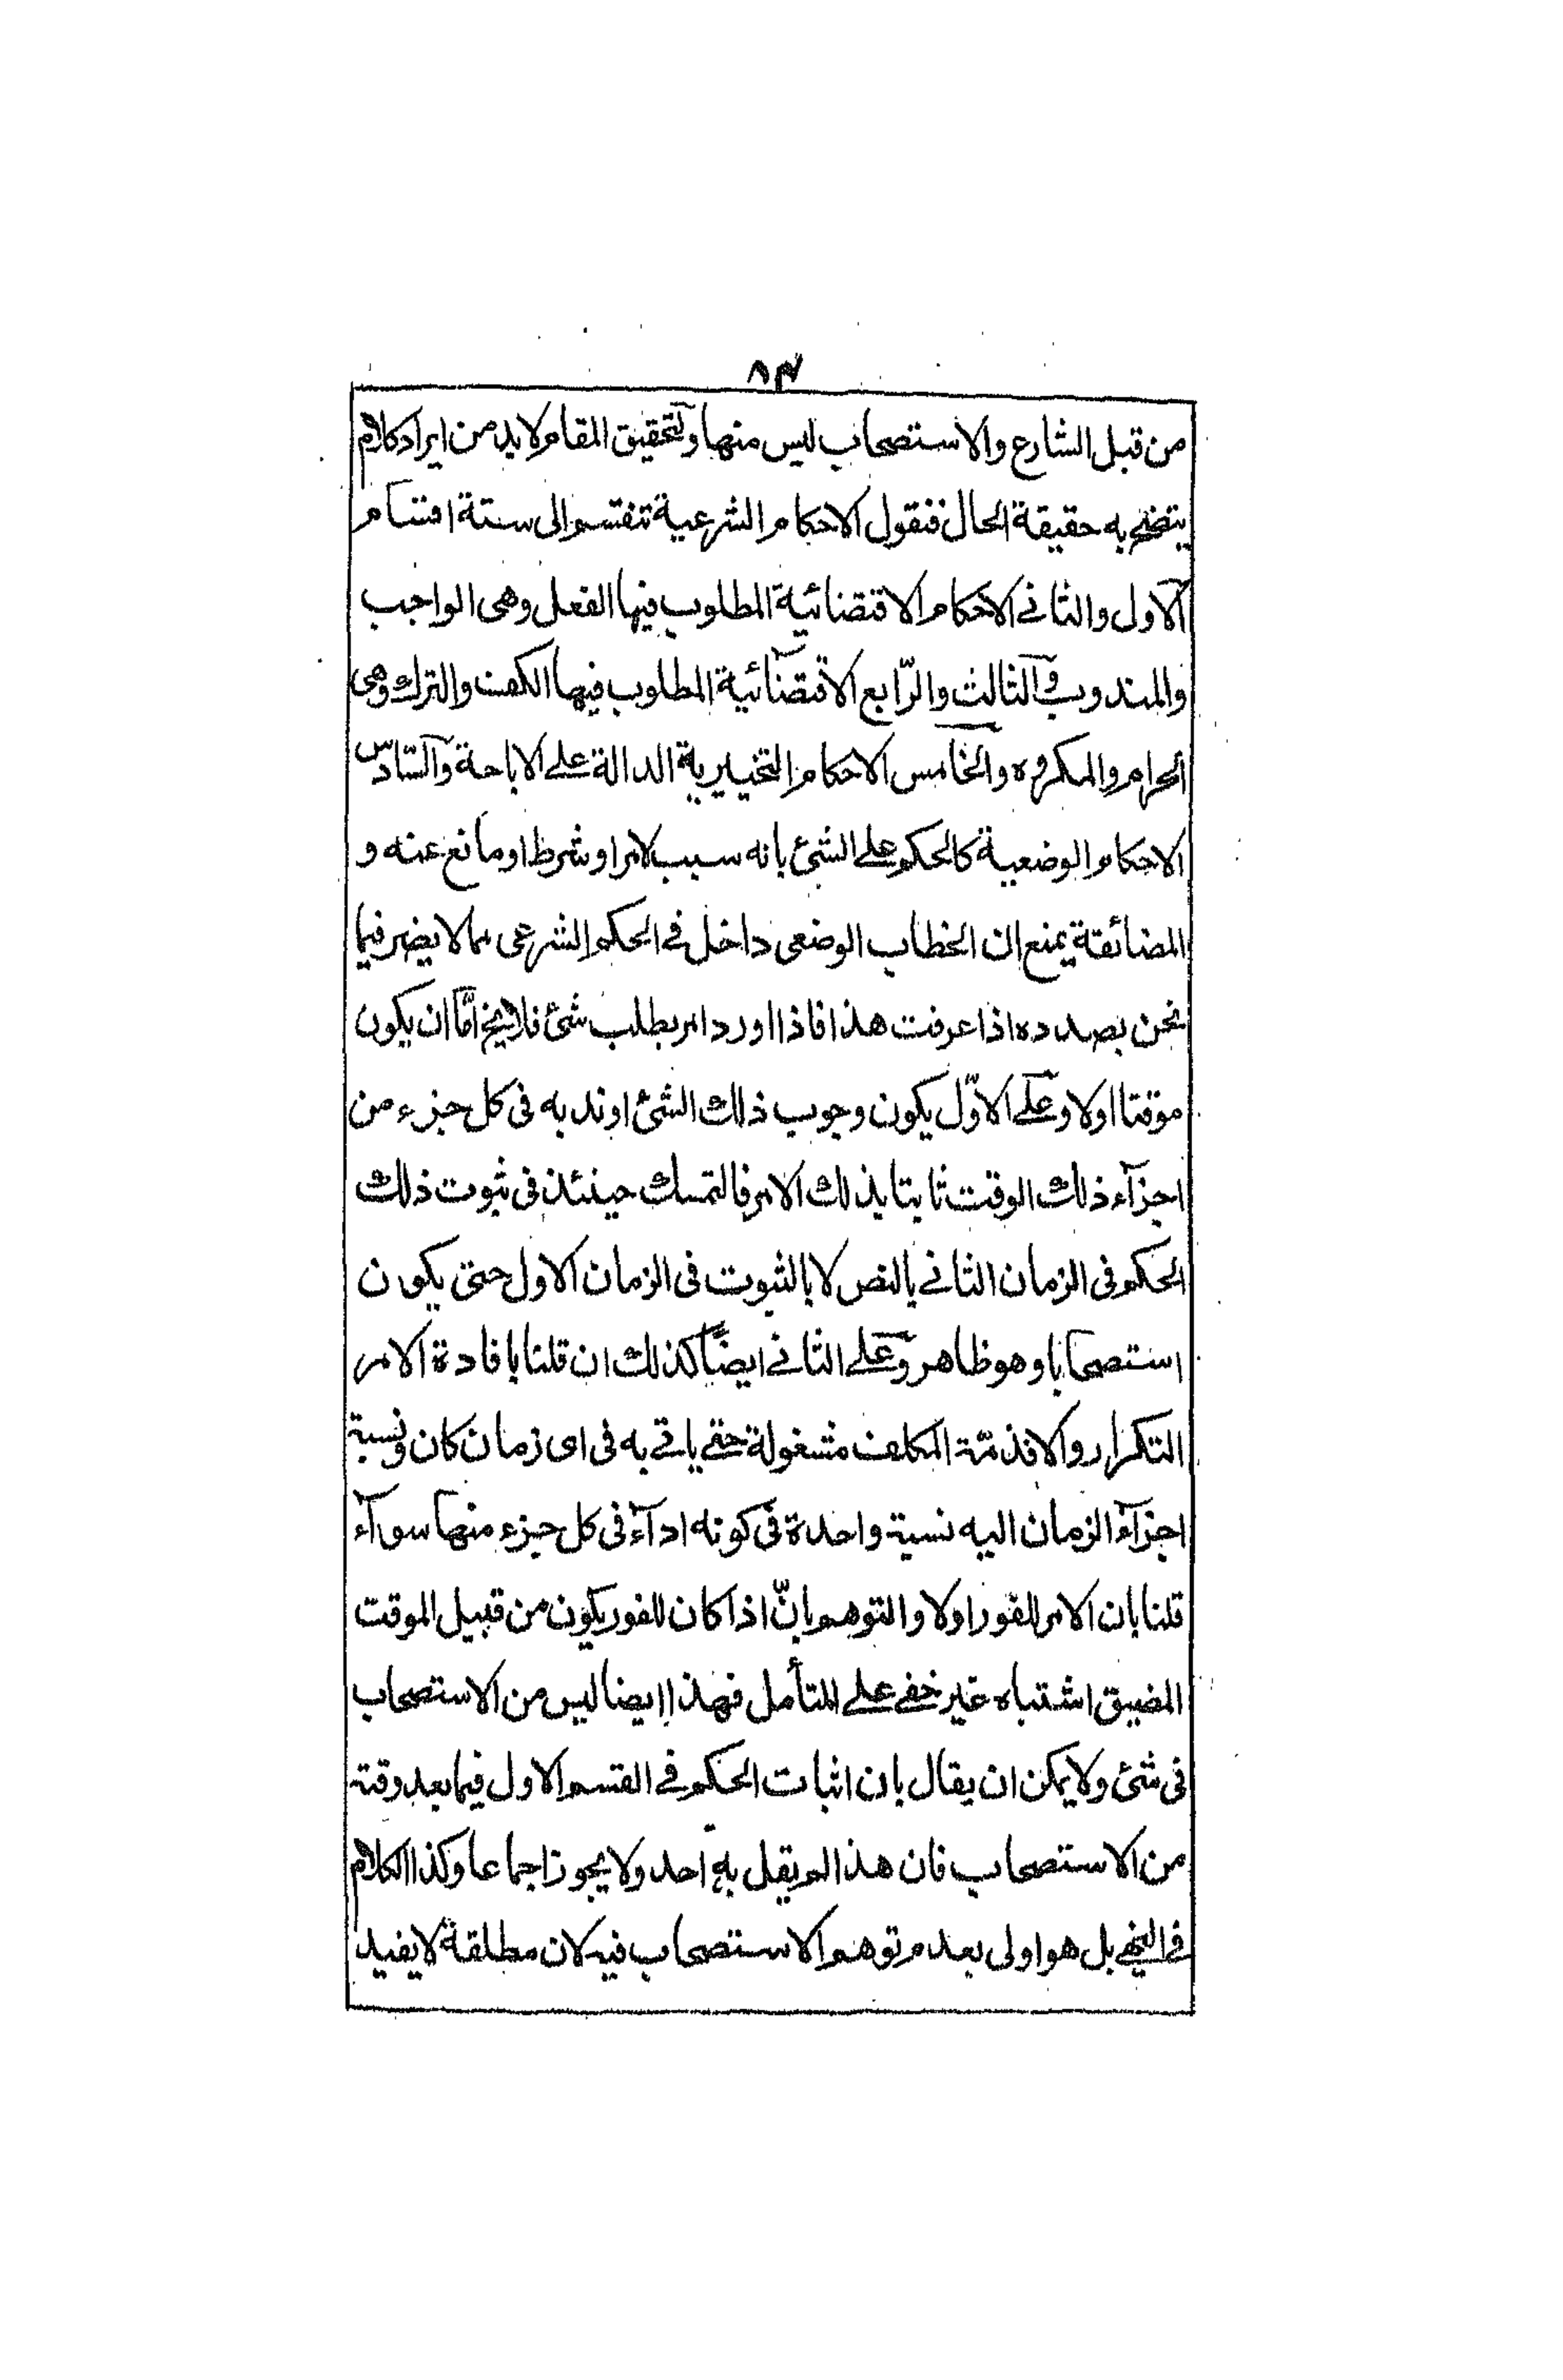 ٨٣
من قبل الشارع والاستصحاب ليس منها ولتحقيق المقام لابد من ايراد كلام
يتضح به حقيقة الحال فنقول الاحكام الشرعية تنقسم الى ستة اقسام
الاول والثاني الاحكام الاقتضائية المطلوب فيها الفعل وهى الواجب
والمندوب والثالث والرّابع الاقتضآئية المطلوب فيها الكف والترك وهى
الحرام والمكروه والخامس الاحكام التخييرية الدالة على الاباحة والسّادس
الاحكام الوضعية كالحكم على الشئ بانه سبب لامر او شرط او مانع عنه و
المضائقة يمنع ان الخطاب الوضعى داخل في الحكم الشرعى مما لا يضر فيما
نحن بصدده اذا عرفت هذا فاذا اورد امر بطلب شئ فلا يخ امّا ان يكون
موقتا اولا وعلى الاوّل يكون وجوب ذلك الشئ او ندبه فى كل جزء من
اجزآء ذلك الوقت ثابتا بذلك الامر فالتمسك حينئذ فى ثبوت ذلك
الحكم فى الزمان الثاني بالنص لا بالثبوت فى الزمان الاول حتى يكون
استصحابا وهو ظاهر وعلى الثاني ايضًا كذلك ان قلنا بافادة الامر
التكرار والا فذمّة المكلف مشغولة حتى ياتي به فى اى زمان كان ونسبة
اجزآء الزمان اليه نسبة واحدة فى كونه ادآء فى كل جزء منها سوآء
قلنا بان الامر للفور اولا والتوهم بانّ اذا كان للفور يكون من قبيل الموقت
المضيق اشتباه غير خفي على المتأمل فهذا ايضا ليس من الاستصحاب
فى شئ ولا يمكن ان يقال بان اثبات الحكم في القسم الاول فيما بعد وقته
من الاستصحاب فان هذا لم يقل به احد ولا يجوز اجماعا وكذا الكلام
في النهي بل هو اولى بعدم توهم الاستصحاب فيه لان مطلقة لا يفيد